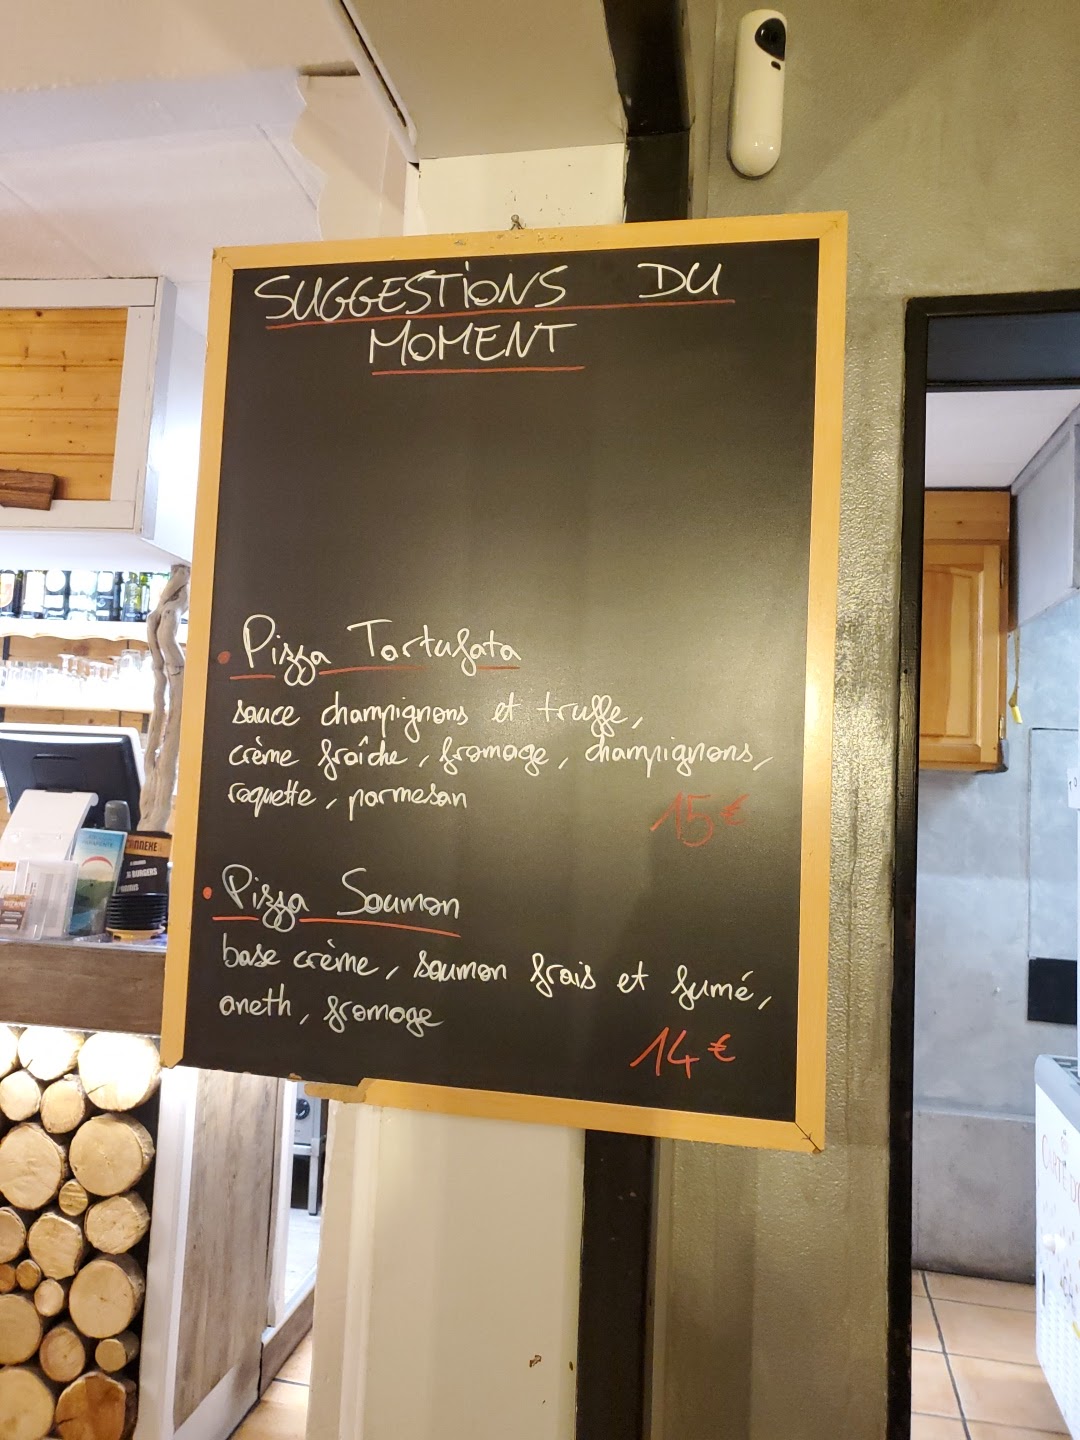 SUGGESTIONS DU
MOMENT
• Pizza Tortufata
sauce champignons et truffe,
crème fraîche, fromage, champignons,
roquette, parmesan
15 €
• Pizza Saumon
base crème, saumon frais et fumé,
aneth, fromage
14 €
BURGERS